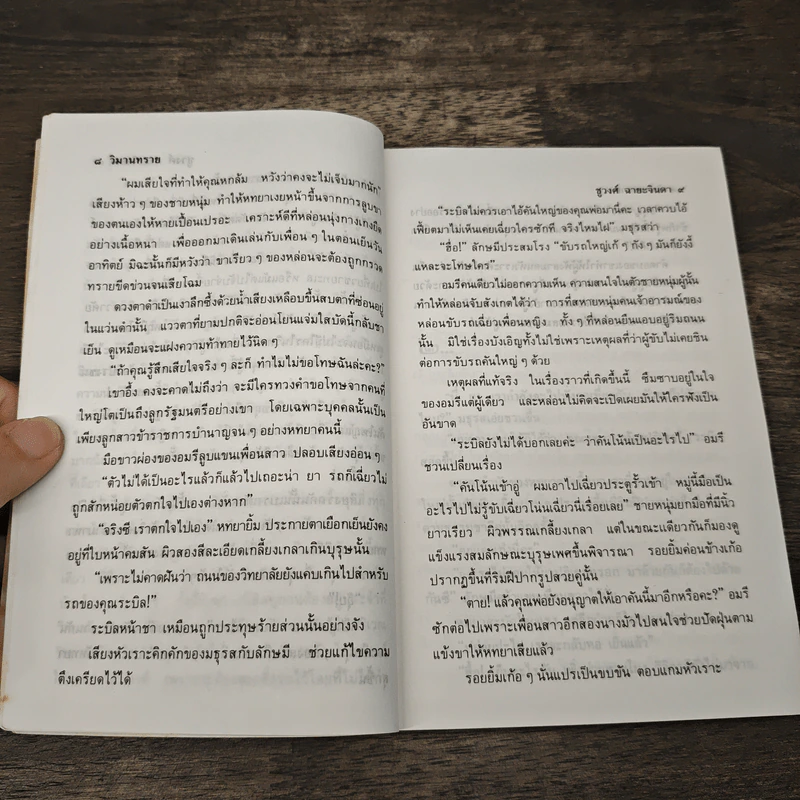 ๘ วิมานทราย
“ผมเสียใจที่ทำให้คุณหกล้ม หวังว่าคงจะไม่เจ็บมากนัก”
เสียงห้าว ๆ ของชายหนุ่ม ทำให้หทยาเงยหน้าขึ้นจากการลูบขา
ของตนเองให้หายเปื้อนเปรอะ เคราะห์ดีที่หล่อนนุ่งกางเกงยืด
อย่างเนื้อหนา เพื่อออกมาเดินเล่นกับเพื่อน ๆ ในตอนเย็นวัน
อาทิตย์ มิฉะนั้นก็มีหวังว่า ขาเรียว ๆ ของหล่อนจะต้องถูกกรวด
ทรายขีดข่วนจนเสียโฉม
ดวงตาดำเป็นเงาลึกซึ้งด้วยน้ำเสียงเหลือบขึ้นสบตาที่ซ่อนอยู่
ในแว่นดำนั้น แววตาที่ยามปกติจะอ่อนโยนแจ่มใสบัดนี้กลับชา
เย็น ดูเหมือนจะแฝงความท้าทายไว้นิด ๆ
“ถ้าคุณรู้สึกเสียใจจริง ๆ ละก็ ทำไมไม่ขอโทษฉันล่ะคะ?”
เขาอึ้ง คงจะคาดไม่ถึงว่า จะมีใครทวงคำขอโทษจากคนที่
ใหญ่โตเป็นถึงลูกรัฐมนตรีอย่างเขา โดยเฉพาะบุคคลนั้นเป็น
เพียงลูกสาวข้าราชการบำนาญจน ๆ อย่างหทยาคนนี้
มือขาวผ่องของอมรีลูบแขนเพื่อนสาว ปลอบเสียงอ่อน ๆ
“ตัวไม่ได้เป็นอะไรแล้วก็แล้วไปเถอะน่า ยา รถก็เฉี่ยวไม่
ถูกสักหน่อยตัวตกใจไปเองต่างหาก”
“จริงซี เราตกใจไปเอง” หทยายิ้ม ประกายตาเยือกเย็นยังคง
อยู่ที่ใบหน้าคมสัน ผิวสองสีละเอียดเกลี้ยงเกลาเกินบุรุษนั้น
“เพราะไม่คาดฝันว่า ถนนของวิทยาลัยยังแคบเกินไปสำหรับ
รถของคุณระบิล!”
ระบิลหน้าชา เหมือนถูกประทุษร้ายส่วนนั้นอย่างจัง
เสียงหัวเราะคิกคักของมธุรสกับลักษมี ช่วยแก้ไขความ
ตึงเครียดไว้ได้
ชูวงศ์ ฉายะจินดา ๙
“ระบิลไม่ควรเอาไอ้คันใหญ่ของคุณพ่อมานี่คะ เวลาควบไอ้
เฟี้ยตมาไม่เห็นเคยเฉี่ยวใครซักที จริงไหมไฝ่” มธุรสว่า
“ฮื่อ!” ลักษมีประสมโรง “ขับรถใหญ่เก้ ๆ กัง ๆ มันก็ยังงี้
แหละจะโทษใคร”
อมรีคนเดียวไม่ออกความเห็น ความสนใจในตัวชายหนุ่มผู้นั้น
ทำให้หล่อนจับสังเกตได้ว่า การที่สหายหนุ่มคนเจ้าอารมณ์ของ
หล่อนขับรถเฉี่ยวเพื่อนหญิง ทั้ง ๆ ที่หล่อนยืนแอบอยู่ริมถนน
นั้น มิใช่เรื่องบังเอิญทั้งไม่ใช่เพราะเหตุผลที่ว่าผู้ขับไม่เคยชิน
ต่อการขับรถคันใหญ่ ๆ ด้วย
เหตุผลที่แท้จริง ในเรื่องราวที่เกิดขึ้นนี้ ซึมซาบอยู่ในใจ
ของอมรีแต่ผู้เดียว และหล่อนไม่คิดจะเปิดเผยมันให้ใครฟังเป็น
อันขาด
“ระบิลยังไม่ได้บอกเลยค่ะ ว่าคันโน้นเป็นอะไรไป” อมรี
ชวนเปลี่ยนเรื่อง
“คันโน้นเข้าอู่ ผมเอาไปเฉี่ยวประตูรั้วเข้า หมู่นี้มือเป็น
อะไรไปไม่รู้ขับเฉี่ยวโน่นเฉี่ยวนี่เรื่อยเลย” ชายหนุ่มยกมือที่มีนิ้ว
ยาวเรียว ผิวพรรณเกลี้ยงเกลา แต่ในขณะเดียวกันก็มองดู
แข็งแรงสมลักษณะบุรุษเพศขึ้นพิจารณา รอยยิ้มค่อนข้างเก้อ
ปรากฏขึ้นที่ริมฝีปากรูปสวยคู่นั้น
“ตาย! แล้วคุณพ่อยังอนุญาตให้เอาคันนี้มาอีกหรือคะ?” อมรี
ซักต่อไปเพราะเพื่อนสาวอีกสองนางมัวไปสนใจช่วยปัดฝุ่นตาม
แข้งขาให้หทยาเสียแล้ว
รอยยิ้มเก้อ ๆ นั้นแปรเป็นขบขัน ตอบแกมหัวเราะ